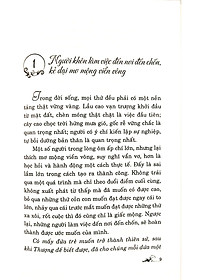 1
Người khôn làm việc đến nơi đến chốn,
kẻ dại mơ mộng viển vông
Trong đời sống, mọi thứ đều phải có một nền
tảng thật vững vàng. Lầu cao vạn trượng khởi đầu từ
mặt đất, đêm mông thật chặt là việc đầu tiên;
cây cao chọc trời hứng mưa gió, gốc rễ vững chắc là
quan trọng nhất; người có ý chí kiến lập sự nghiệp,
tự bồi dưỡng bản thân là quan trọng nhất.
Một số người trong lòng ôm ấp chí lớn, nhưng lại
thích mơ mộng viển vông, suy nghĩ vẩn vơ, hơn là
học hỏi và hành động một cách thực tế. Đấy là sai
lầm lớn trong cách tạo ra thành công. Không trải
qua một quá trình mà chỉ theo đuổi điểm cuối cùng,
không xuất phát từ thấp mà đã muốn có được cao,
bỏ qua những thứ đơn giản mà muốn có được rực
rỡ, nhảy qua cái trước mắt muốn đạt được những thứ
xa xôi, rốt cuộc thì đó cũng chỉ là giấc mộng. Ngược
lại, những người làm việc đến nơi đến chốn, sẽ hoàn
thành được ước muốn của mình.
Có mấy đứa trẻ muốn trở thành thiên sứ, sau
khi Thượng đế biết được, đã cho chúng mỗi đứa một